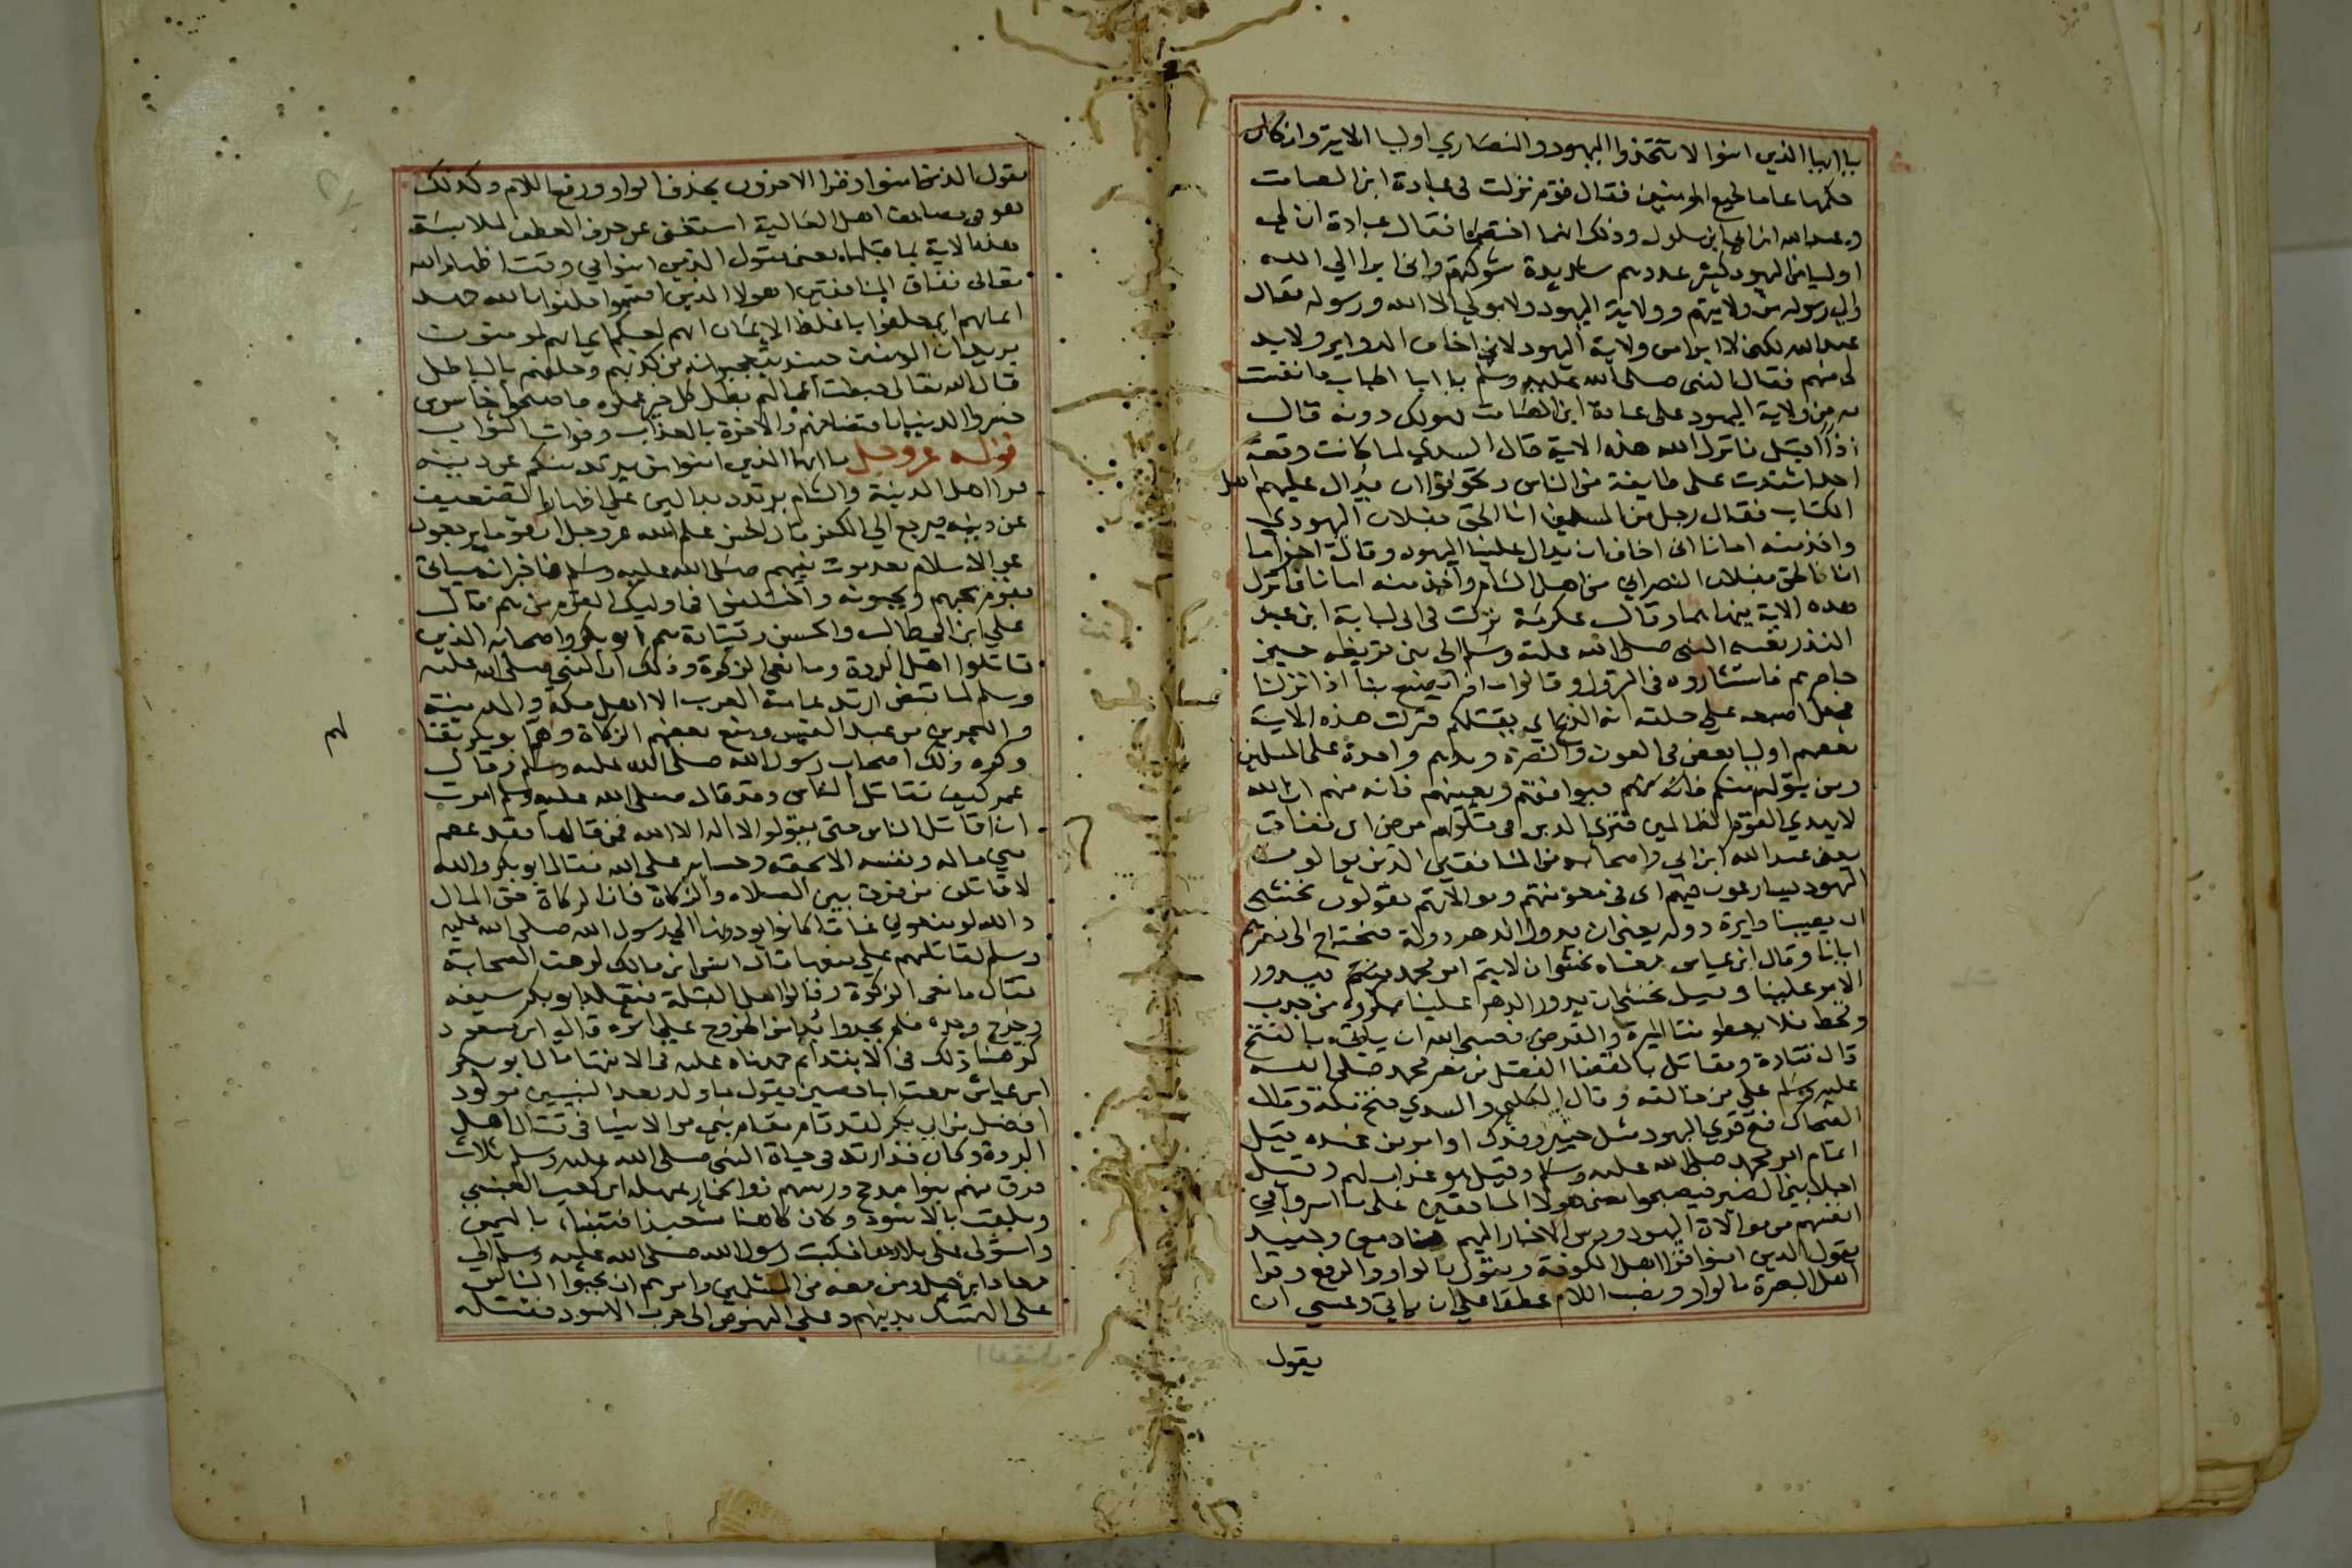 يا ايها الذين امنوا لا تتخذوا اليهود والنصاري اوليا الاية وان كان
حكمها عاما لجميع المومنين فقال قوم نزلت في عبادة ابن الصامت
وعبد الله ابن ابي ابن سلول وذلك انهما اختصما فقال عبادة ان لي
اوليا من اليهود كثير عددهم شديدة شوكتهم واني ابرا الي الله
والي رسوله من ولايتهم وولاية اليهود ولا مولي لي الا الله ورسوله فقال
عبد الله لكني لا ابرا من ولاية اليهود لاني اخاف الدواير ولا بد
لي منهم فقال النبي صلى الله عليه وسلم يا ابا الحباب ما نفست
به من ولاية اليهود على عبادة ابن الصامت فهو لك دونه قال
اذا اقبل فانزل الله هذه الاية قال السدي لما كانت وقعة
احد اشتدت على طايفة من الناس وتخوفوا ان يدال عليهم اهل
الكتاب فقال رجل من المسلمين انا الحق بفلان اليهودي
واخذ منه امانا اني اخاف ان يدال علينا اليهود وقال اخر اما
انا فالحق بفلان النصراني من اهل الشام واخذ منه امانا فانزل
هذه الاية ينهاهما وقال عكرمة نزلت في ابي لبابة ابن عبد
المنذر بعثه النبي صلى الله عليه وسلم الي بني قريظة حين
حاصرهم فاستشاروه في النزول وقالوا ماذا يصنع بنا اذا نزلنا
فجعل اصبعه علي حلقه انه الذبح اي يقتلكم فنزلت هذه الاية
بعضهم اوليا بعض في العون والنصرة ويدهم واحدة على المسلمين
ومن يتولهم منكم فانه منهم فيوافقهم ويعينهم فانه منهم ان الله
لا يهدي القوم الظالمين فتري الذين في قلوبهم مرض اي نفاق
يعني عبد الله ابن ابي واصحابه من المنافقين الذين يوالون
اليهود يسارعون فيهم اي في معونتهم وموالاتهم يقولون نخشى
ان يصيبنا دايرة دولة يعني ان يدول الدهر دولة فنحتاج الى نصرهم
ايانا وقال ابن عباس معناه نخشى ان لا يتم امر محمد فيدور
الامر علينا وقيل نخشى ان يدور الدهر علينا بمكروه من جدب
وقحط فلا يعطوننا الميرة والقرض فعسى الله ان ياتي بالفتح
قال قتادة ومقاتل بالقضا الفصل من نصر محمد صلى الله
عليه وسلم على من خالفه وقال الكلبي والسدي فتح مكة وقال
الضحاك فتح قري اليهود مثل خيبر وفدك او امر من عنده قيل
اتمام امر محمد صلى الله عليه وسلم وقيل هو عذاب لهم وقيل
اجلا بني النضير فيصبحوا يعني هولا المنافقين على ما اسروا في
انفسهم من موالاة اليهود ودس الاخبار اليهم نادمين وحينئذ
يقول الذين امنوا قرا اهل الكوفة ويقول بالواو والرفع وقرا
اهل البصرة بالواو ونصب اللام عطفا علي ان ياتي وعسى ان
يقول
يقول الذين امنوا وقرا الاخرون بحذف الواو ورفع اللام وكذلك
هو في مصاحف اهل العالية استغنى عن حرف العطف لملابسة
هذه الاية بما قبلها يعني يقول الذين امنوا في وقت اظهار الله
تعالى نفاق المنافقين اهولا الذين اقسموا حلفوا بالله جهد
ايمانهم اي حلفوا باغلظ الايمان انهم لمعكم اي انهم لمومنون
يريد ان المومنين حينئذ يتعجبون من كذبهم وحلفهم بالباطل
قال الله تعالى حبطت اعمالهم بطل كل خير عملوه فاصبحوا خاسرين
خسروا الدنيا بافتضاحهم والاخرة بالعذاب وفوات الثواب
قوله عز وجل يا ايها الذين امنوا من يرتد منكم عن دينه
قرا اهل المدينة والشام يرتدد بدالين علي اظهار التضعيف
عن دينه فيرجع الي الكفر قال الحسن علم الله عز وجل ان قوما يرجعون
عن الاسلام بعد موت نبيهم صلى الله عليه وسلم فاخبر انه سياتي
بقوم يحبهم ويحبونه واختلفوا في اوليك القوم من هم قال
علي ابن ابي طالب والحسن وقتادة هم ابو بكر واصحابه الذين
قاتلوا اهل الردة ومانعي الزكوة وذلك ان النبي صلى الله عليه
وسلم لما قبض ارتد عامة العرب الا اهل مكة والمدينة
والبحرين من عبد القيس ومنع بعضهم الزكاة وهم ابو بكر بقتالهم
وكره ذلك اصحاب رسول الله صلى الله عليه وسلم وقال
عمر كيف نقاتل الناس وقد قال صلى الله عليه وسلم امرت
ان اقاتل الناس حتى يقولوا لا اله الا الله فمن قالها فقد عصم
مني ماله ونفسه الا بحقه وحسابه على الله فقال ابو بكر والله
لاقاتلن من فرق بين الصلاه والزكاة فان الزكاة حق المال
والله لو منعوني عناقا كانوا يودونها الي رسول الله صلى الله عليه
وسلم لقاتلتهم علي منعها قال انس ابن مالك كرهت الصحابة
قتال مانعي الزكوة وقالوا اهل القبلة فتقلد ابو بكر سيفه
وخرج وحده فلم يجدوا بدا من الخروج علي اثره قال ابن مسعود
كرهنا ذلك في الابتدا ثم حمدناه عليه في الانتها قال ابو بكر
ابن عياش سمعت ابا حصين يقول ما ولد بعد النبيين مولود
افضل من ابي بكر لقد قام مقام نبي من الانبيا في قتال اهل
الردة وكان قد ارتد في حياة النبي صلى الله عليه وسلم ثلاث
فرق منهم بنوا مدحج وريسهم ذو الخمار عبهلة ابن كعب العنسي
ويلقب بالاسود وكان كاهنا مشعبذا فتنبا باليمن
واستولى على بلادها فكتب رسول الله صلى الله عليه وسلم الي
معاذ ابن جبل ومن معه من المسلمين وامرهم ان يحثوا الناس
على التمسك بدينهم وعلي النهوض الى حرب الاسود فقتله